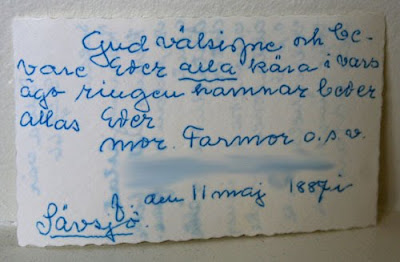 Gud välsigne och be-
vare Eder alla kära i vars
ägo ringen hamnar beder
allas Eder
mor. Farmor o.s.v.
f. den 11 maj 1887 i
Sävsjö.